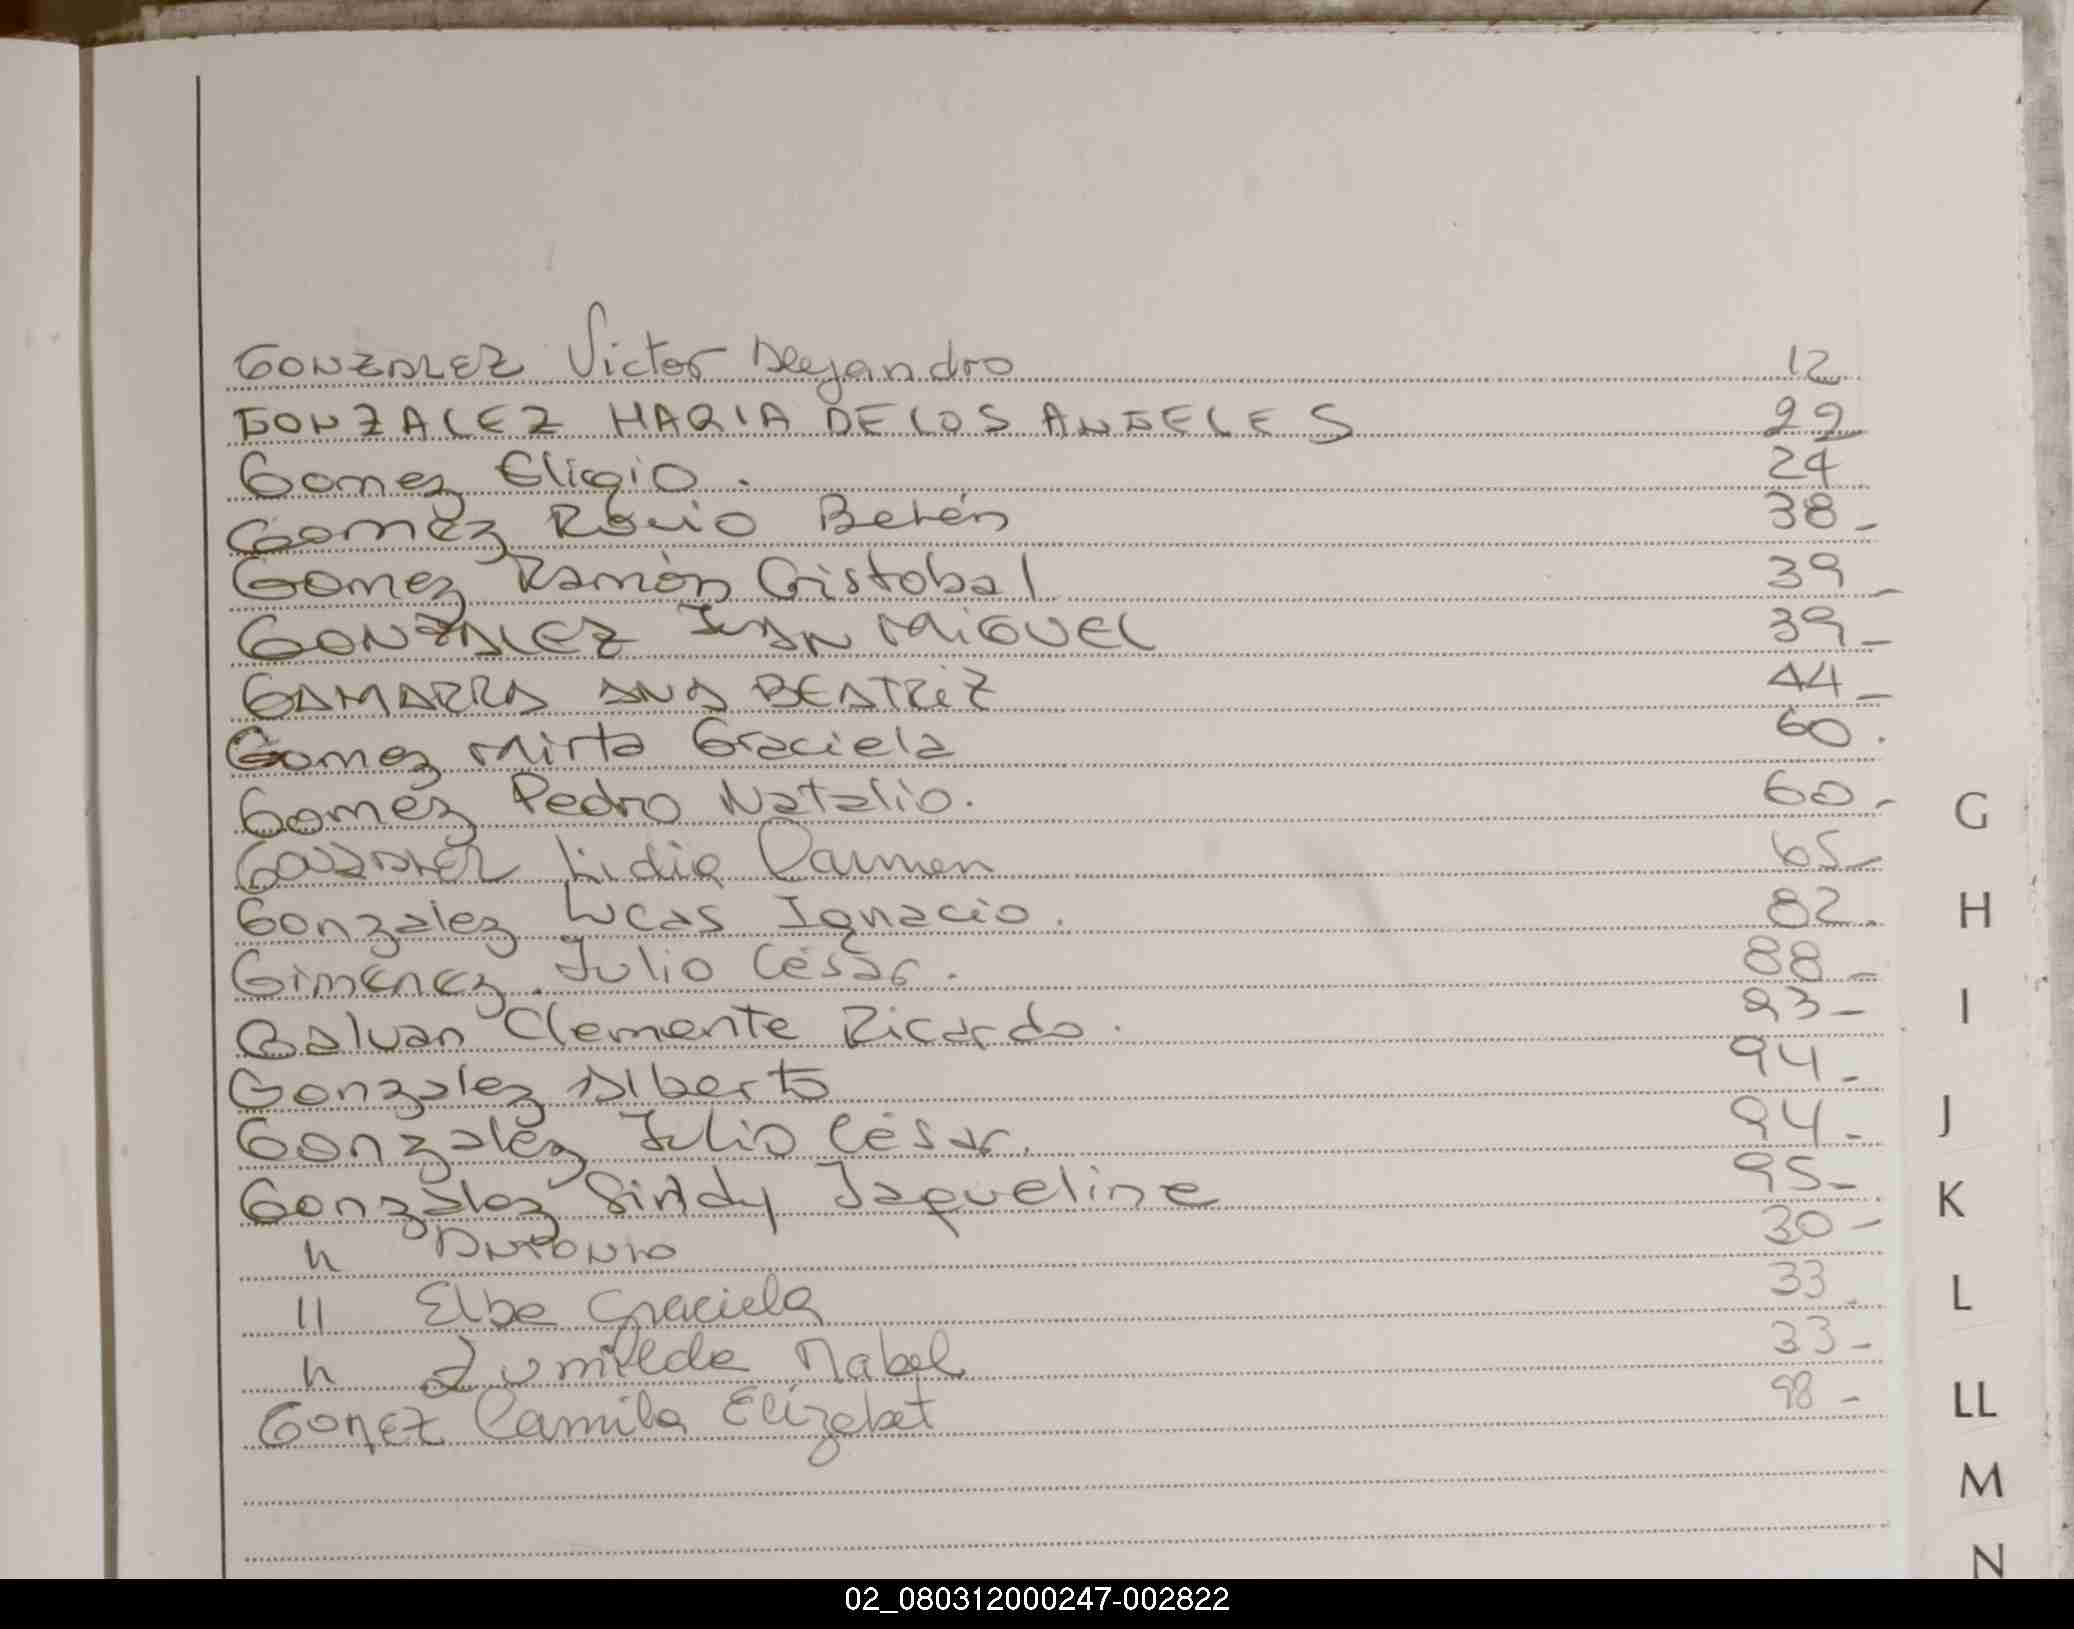 GONZALEZ Victor Alejandro 12
GONZALEZ MARIA DE LOS ANGELES 22
Gomez Eligio. 24
Gomez Rocio Belén 38-
Gomez Ramón Cristobal 39-
GONZALEZ JUAN MIGUEL 39-
GAMARRA ANA BEATRIZ 44-
Gomez Mirta Graciela 60.
Gomez Pedro Natalio. 60-
Lidia Carmen 65-
Gonzalez Lucas Ignacio. 82.
Gimenez Julio César. 88-
Galvan Clemente Ricardo. 93-
Gonzalez Alberto 94-
Gonzalez Julio César. 94-
González Sindy Jaqueline 95-
" ANTONIO 30-
" Elba Graciela 33-
" Zumilda Mabel 33-
GOMEZ Camila Elizabet 98-
G
H
I
J
K
L
LL
M
N
02_080312000247-002822